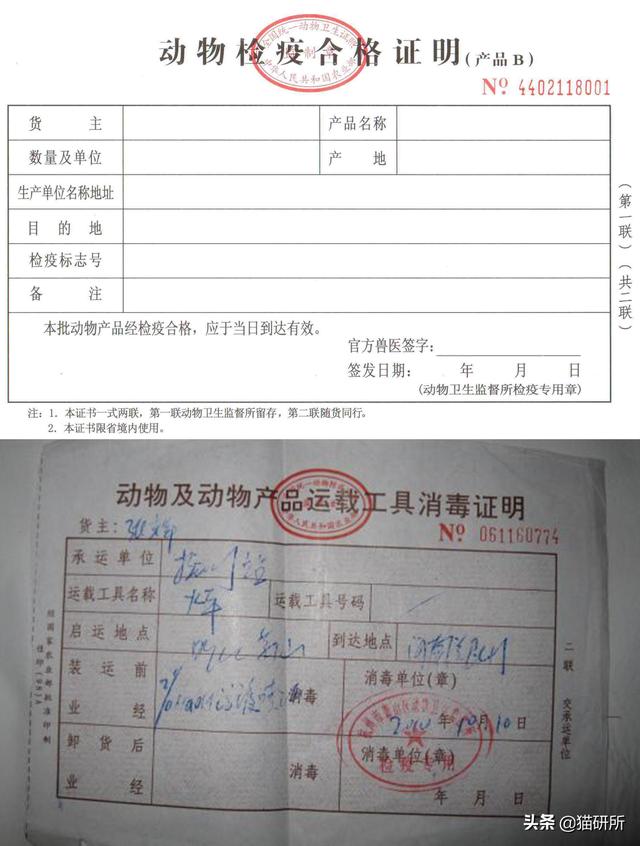 动物检疫合格证明(产品B)
全国统一动物卫生证明
中华人民共和国农业部
№ 4402118001
货主
产品名称
数量及单位
产地
生产单位名称地址
目的地
检疫标志号
备注
本批动物产品经检疫合格，应于当日到达有效。
官方兽医签字：
签发日期： 年 月 日
(动物卫生监督所检疫专用章)
(第一联)(共二联)
注：1．本证书一式两联，第一联动物卫生监督所留存，第二联随货同行。
2．本证书限省境内使用。
动物及动物产品运载工具消毒证明
货主：
№ 061160774
承运单位
运载工具名称
火车
运载工具号码
启运地点
到达地点
装运前
业经
消毒
消毒单位(章)
2010年10月10日
卸货后
业经
消毒
消毒单位(章)
年 月 日
检疫专用
二联 交承运单位
头条 @猫研所